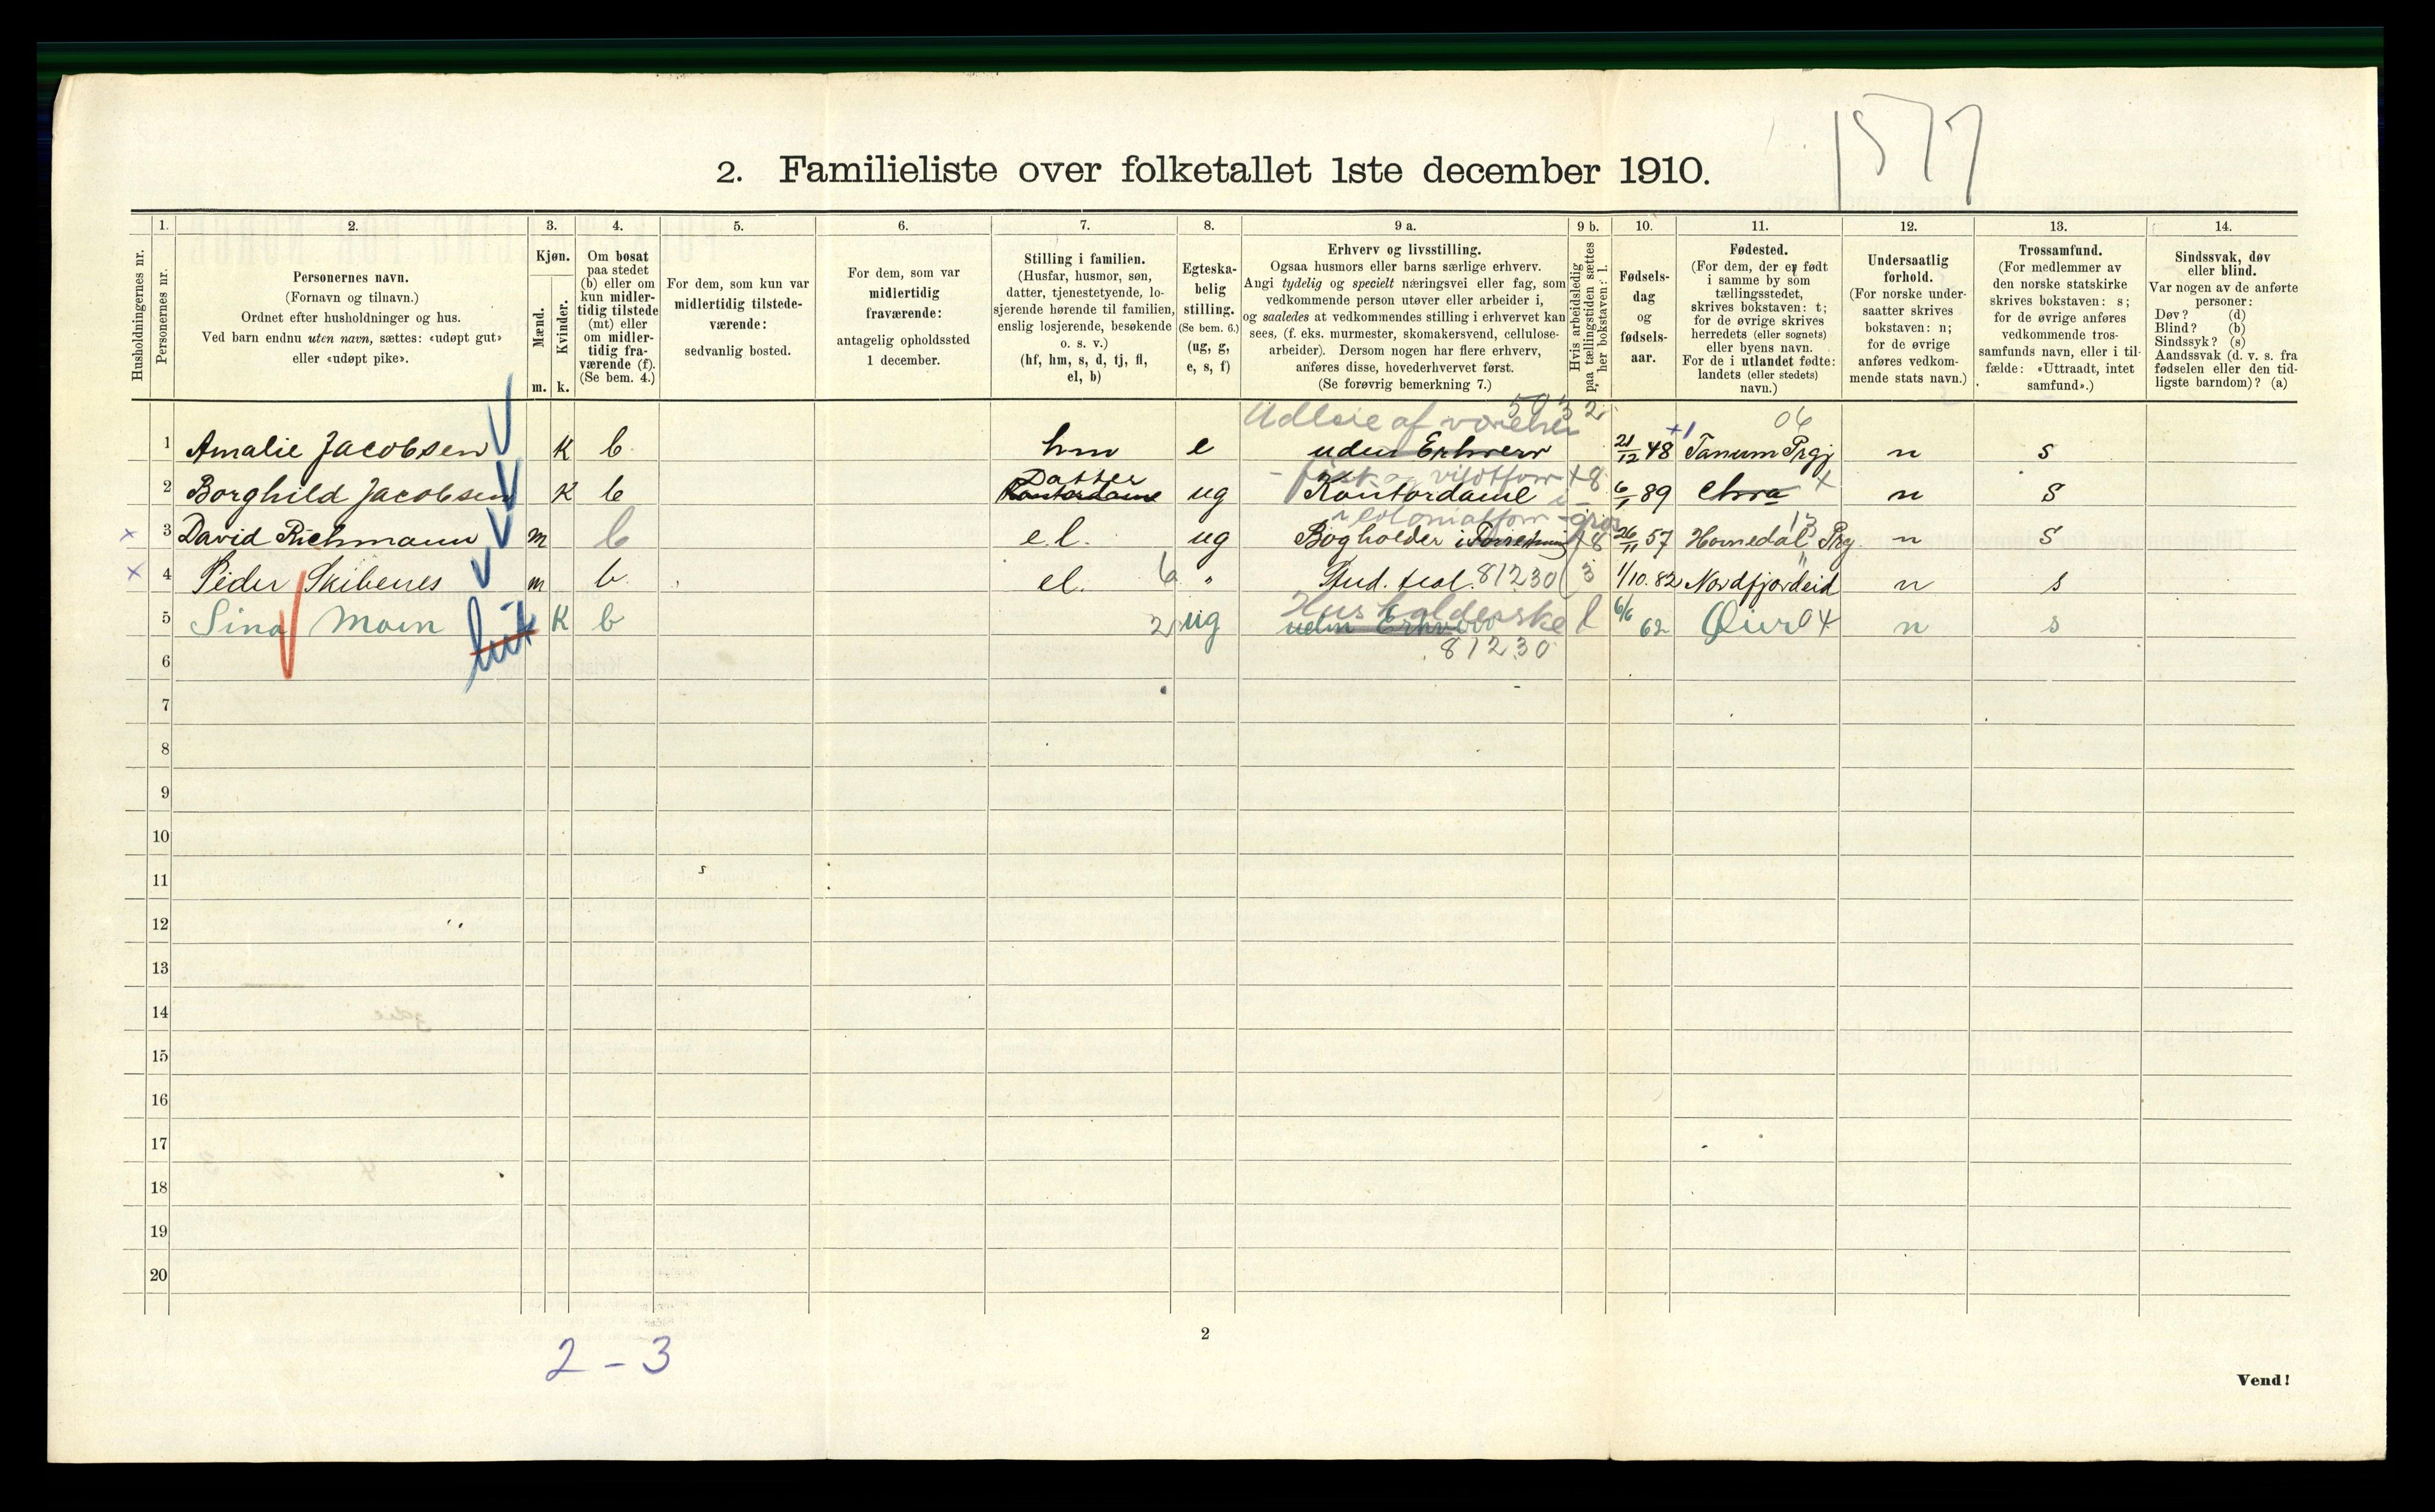 1577
2. Familieliste over folketallet 1ste december 1910.
1. 2. 3. 4. 5. 6. 7. 8. 9 a. 9 b. 10. 11. 12. 13. 14.
Husholdningernes nr.
Personernes nr.
Personernes navn.
(Fornavn og tilnavn.)
Ordnet efter husholdninger og hus.
Ved barn endnu uten navn, sættes: «udøpt gut»
eller «udøpt pike».
Kjøn.
Mænd.
Kvinder.
m. k.
Om bosat
paa stedet
(b) eller om
kun midler-
tidig tilstede
(mt) eller
om midler-
tidig fra-
værende (f).
(Se bem. 4.)
For dem, som kun var
midlertidig tilstede-
værende:
sedvanlig bosted.
For dem, som var
midlertidig
fraværende:
antagelig opholdssted
1 december.
Stilling i familien.
(Husfar, husmor, søn,
datter, tjenestetyende, lo-
sjerende hørende til familien,
enslig losjerende, besøkende
o. s. v.)
(hf, hm, s, d, tj, fl,
el, b)
Egteska-
belig
stilling.
(Se bem. 6.)
(ug, g,
e, s, f)
Erhverv og livsstilling.
Ogsaa husmors eller barns særlige erhverv.
Angi tydelig og specielt næringsvei eller fag, som
vedkommende person utøver eller arbeider i,
og saaledes at vedkommendes stilling i erhvervet kan
sees, (f. eks. murmester, skomakersvend, cellulose-
arbeider). Dersom nogen har flere erhverv,
anføres disse, hovederhvervet først.
(Se forøvrig bemerkning 7.)
Hvis arbeidsledig
paa tællingstiden sættes
her bokstaven: l.
Fødsels-
dag
og
fødsels-
aar.
Fødested.
(For dem, der er født
i samme by som
tællingsstedet,
skrives bokstaven: t;
for de øvrige skrives
herredets (eller sognets)
eller byens navn.
For de i utlandet fødte:
landets (eller stedets)
navn.)
Undersaatlig
forhold.
(For norske under-
saatter skrives
bokstaven: n;
for de øvrige
anføres vedkom-
mende stats navn.)
Trossamfund.
(For medlemmer av
den norske statskirke
skrives bokstaven: s;
for de øvrige anføres
vedkommende tros-
samfunds navn, eller i til-
fælde: «Uttraadt, intet
samfund».)
Sindssvak, døv
eller blind.
Var nogen av de anførte
personer:
Døv? (d)
Blind? (b)
Sindssyk? (s)
Aandssvak (d. v. s. fra
fødselen eller den tid-
ligste barndom)? (a)
Udleie af værelser 06
1 Amalie Jacobsen K b hm e uden Erhverv 21/12 48 Tanum Prgj n s
Datter
2 Borghild Jacobsen K b Kontordame ug Kontordame 6/1 89 Chra n s
3 David Richmann m b e.l. ug Bogholder i 26/11 57 Homedal Prg n s
4 Peder Skibenes m b. el. " Stud. real. 81230 1/10.82 Nordfjordeid n s
Husholderske
5 Sina Moen K b ug uden Erhverv l 6/6 62 Øier 04 n s
81230
6
7
8
9
10
11
12
13
14
15
16
17
18
19
20
2
2 - 3
Vend!